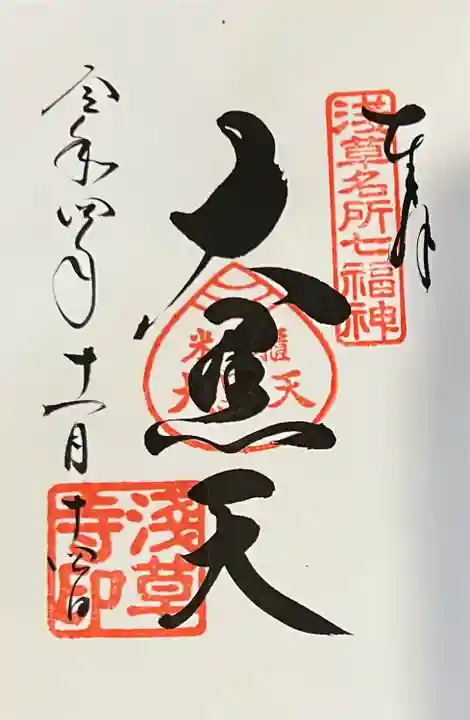 奉拝
浅草名所七福神
大黒天
令和四年十一月十四日
浅草
寺印